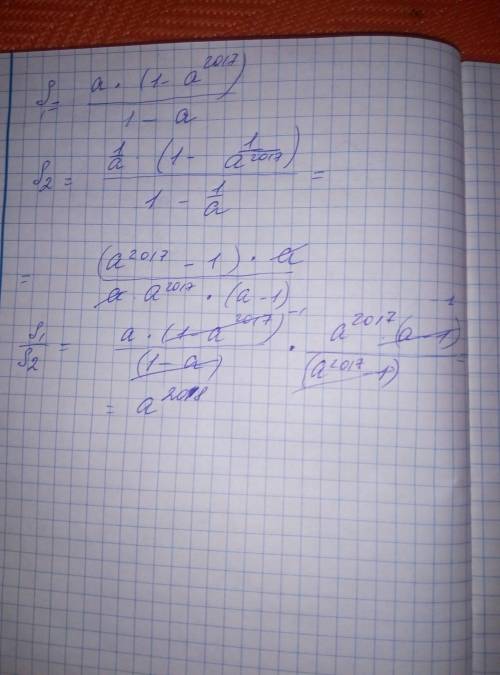 S₁= a · (1 - a²⁰¹⁷) / 1 - a
S₂ = 1/a · (1 - 1/a²⁰¹⁷) / 1 - 1/a =
= (a²⁰¹⁷ - 1) · a / a · a²⁰¹⁷ · (a - 1)
S₁/S₂ = a · (1 - a²⁰¹⁷)⁻¹ / (1 - a) · a²⁰¹⁷ · (a - 1)⁻¹ / (a²⁰¹⁷ - 1) =
= a²⁰¹⁸